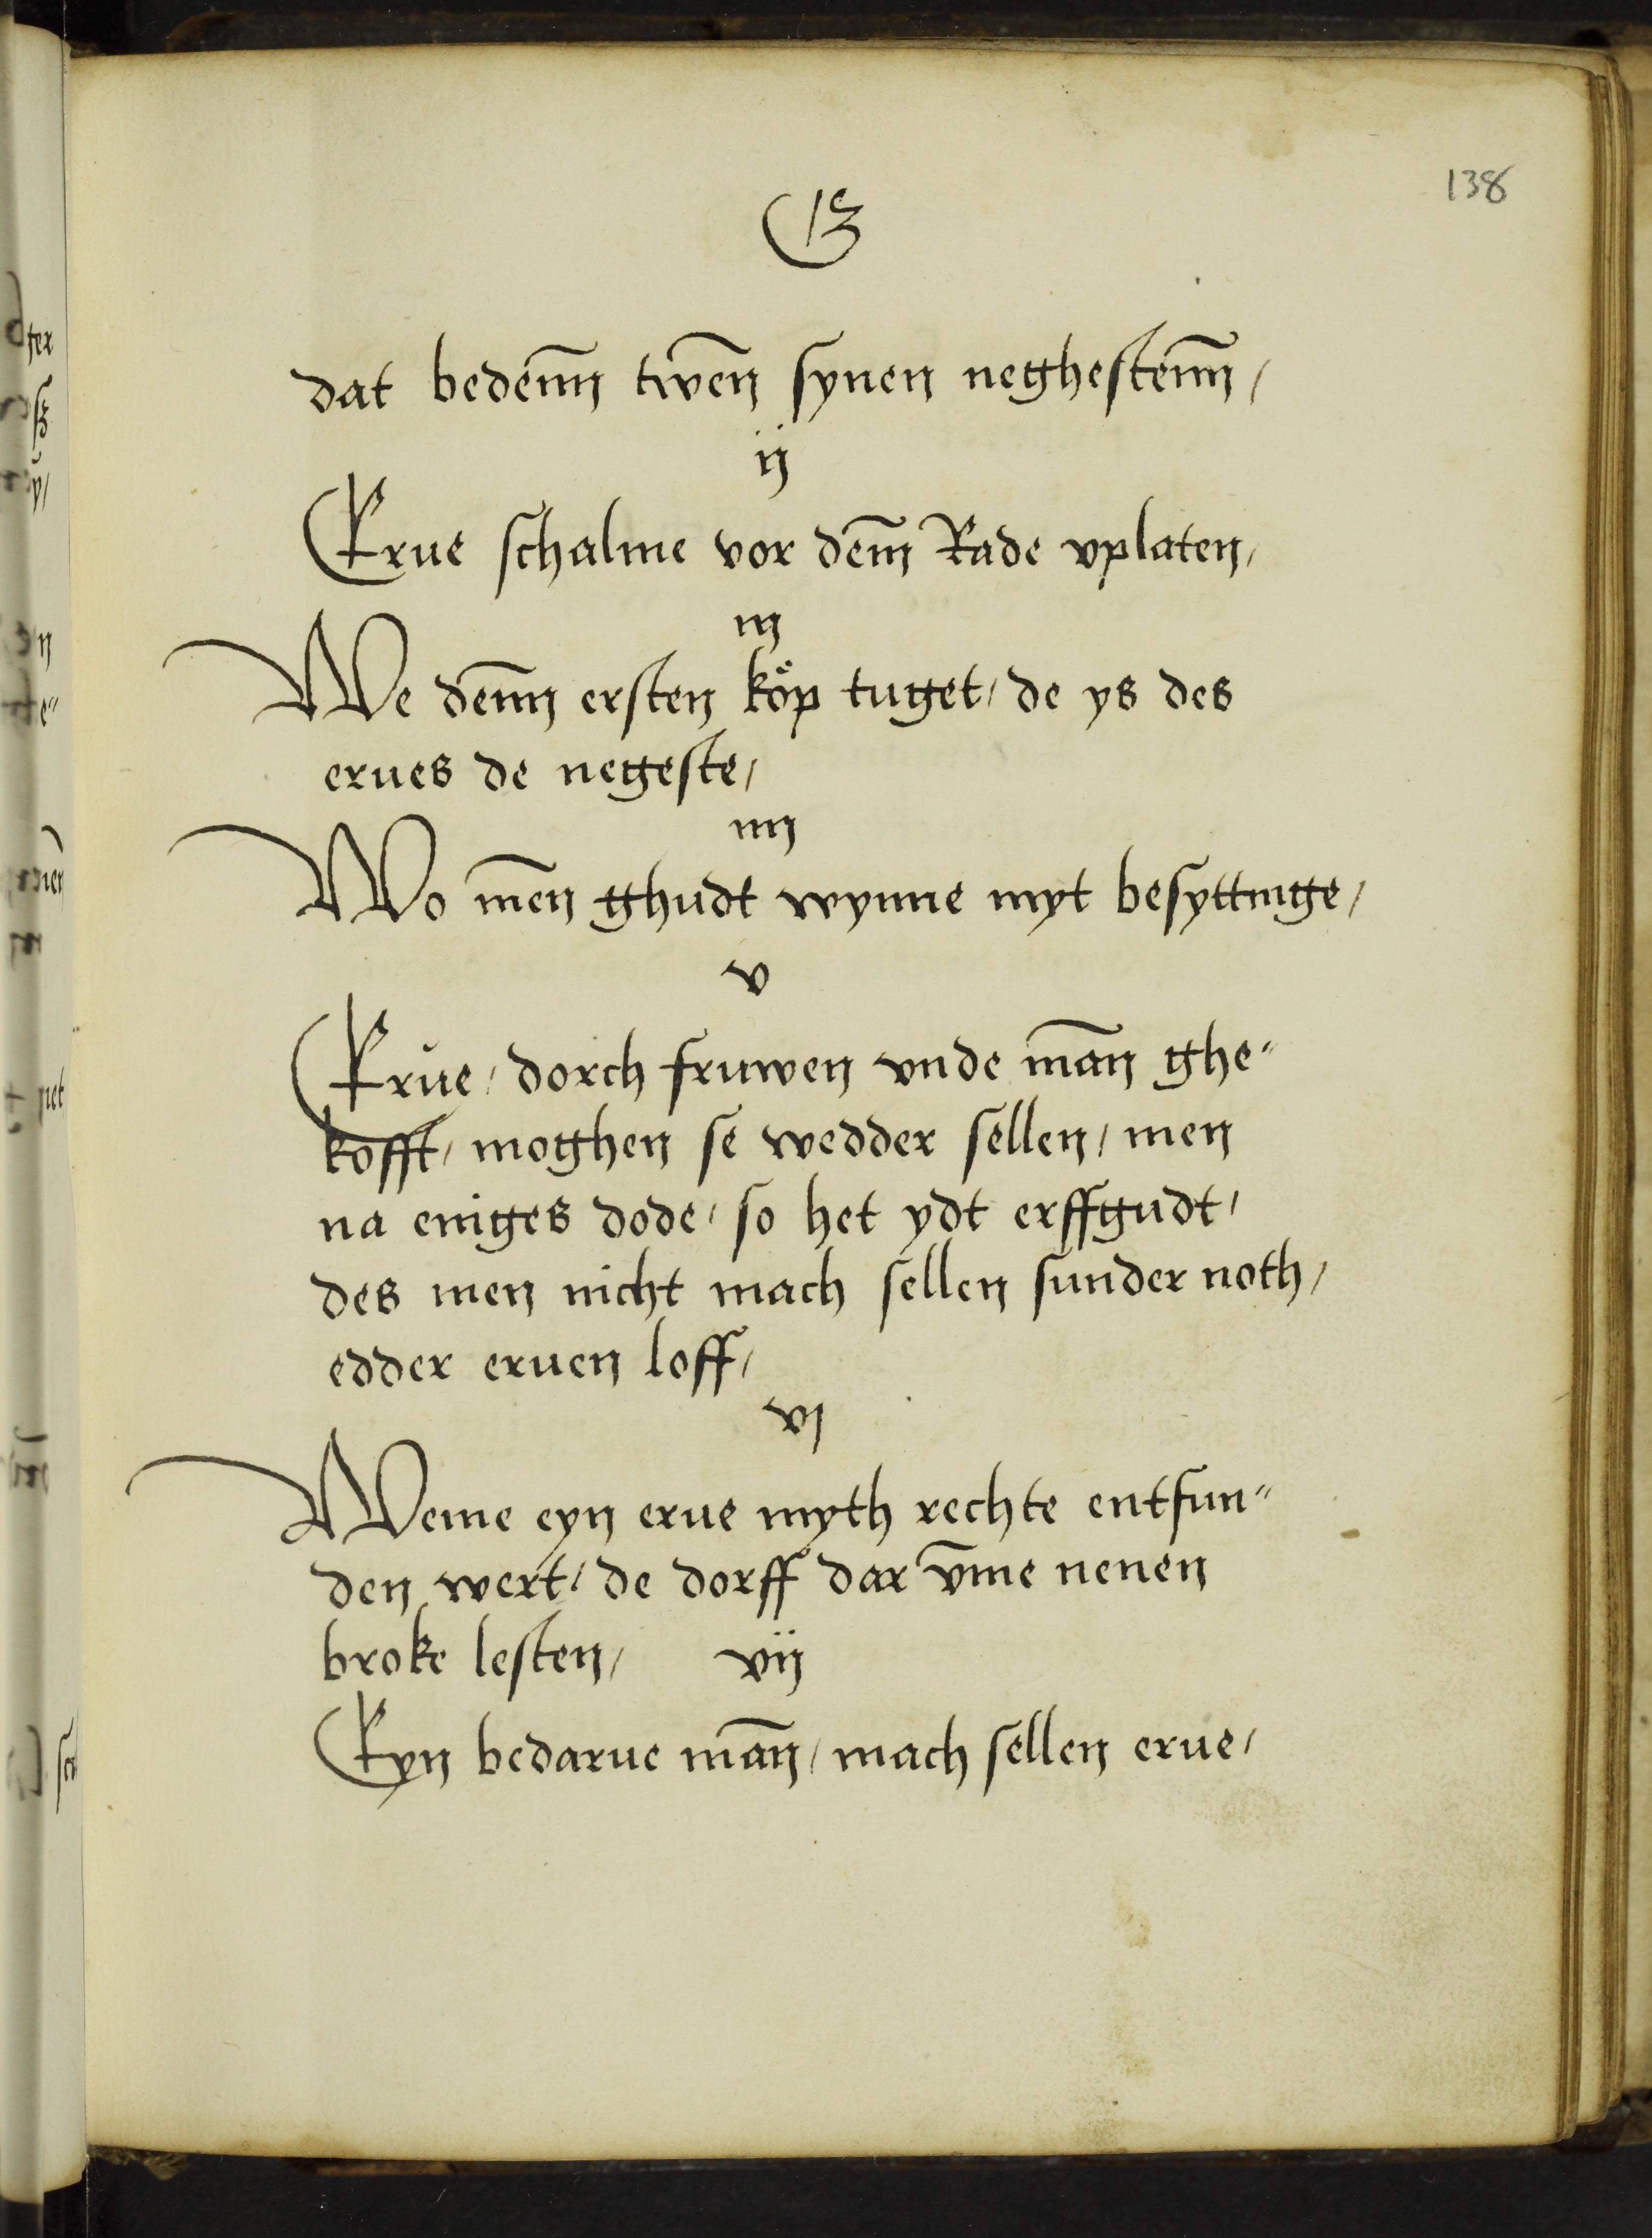 138
E
dat bedem̄n twēn synen neghestem̄n /
ij
Erue schalme vor dem̄ Rade vplaten /
iij
We dem̄n ersten kôp tuget / de ys des
erues de negeste /
iiij
Wo mēn ghudt wynne myt besyttinge /
v
Erue / dorch fruwen vnde mān ghe"
kofft / moghen se wedder sellen / men
na eniges dode / so het ydt erffgudt /
des men nicht mach sellen sunder noth /
edder eruen loff /
vj
Weme eyn erue myth rechte entfun"
den wert / de dorff dar v̄me nenen
broke lesten / vij
Eyn bedarue mān / mach sellen erue /